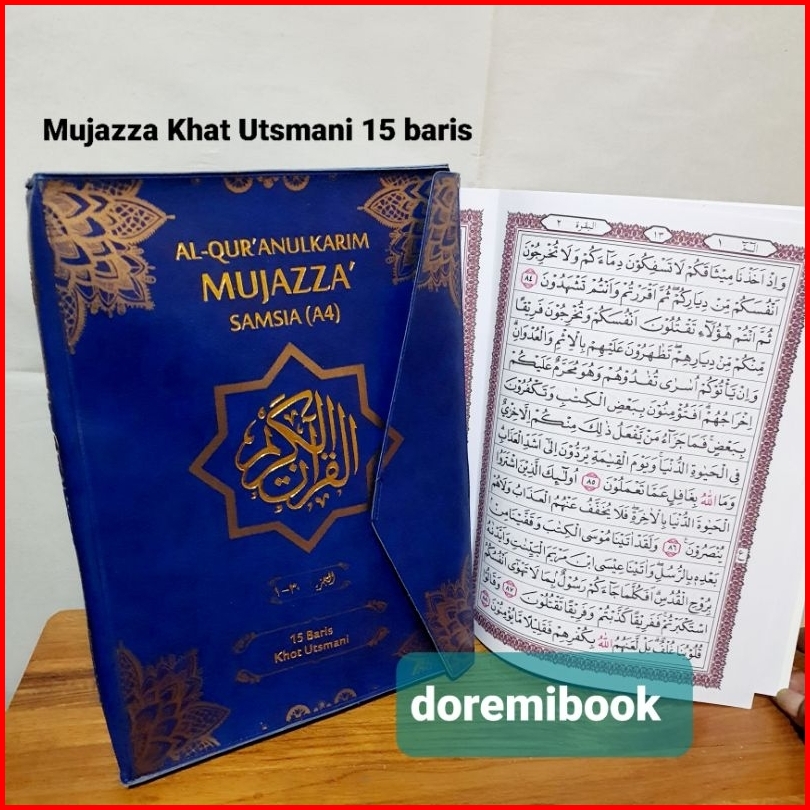 Mujazza Khat Utsmani 15 baris
AL-QUR'ANULKARIM
MUJAZZA'
SAMSIA (A4)
القرآن الكريم
الجزء ٣٠-١
15 Baris
Khot Utsmani
الۤمّۤ ١
١٣
البقرة ٢
وَاِذْ اَخَذْنَا مِيْثَاقَكُمْ لَا تَسْفِكُوْنَ دِمَاۤءَكُمْ وَلَا تُخْرِجُوْنَ
اَنْفُسَكُمْ مِّنْ دِيَارِكُمْ ثُمَّ اَقْرَرْتُمْ وَاَنْتُمْ تَشْهَدُوْنَ ٨٤
ثُمَّ اَنْتُمْ هٰٓؤُلَاۤءِ تَقْتُلُوْنَ اَنْفُسَكُمْ وَتُخْرِجُوْنَ فَرِيْقًا
مِّنْكُمْ مِّنْ دِيَارِهِمْ تَظٰهَرُوْنَ عَلَيْهِمْ بِالْاِثْمِ وَالْعُدْوَانِ
وَاِنْ يَّأْتُوْكُمْ اُسٰرٰى تُفٰدُوْهُمْ وَهُوَ مُحَرَّمٌ عَلَيْكُمْ
اِخْرَاجُهُمْ اَفَتُؤْمِنُوْنَ بِبَعْضِ الْكِتٰبِ وَتَكْفُرُوْنَ
بِبَعْضٍ فَمَا جَزَاۤءُ مَنْ يَّفْعَلُ ذٰلِكَ مِنْكُمْ اِلَّا خِزْيٌ
فِى الْحَيٰوةِ الدُّنْيَا وَيَوْمَ الْقِيٰمَةِ يُرَدُّوْنَ اِلٰٓى اَشَدِّ الْعَذَابِ
وَمَا اللّٰهُ بِغَافِلٍ عَمَّا تَعْمَلُوْنَ ٨٥ اُولٰۤىِٕكَ الَّذِيْنَ اشْتَرَوُا
الْحَيٰوةَ الدُّنْيَا بِالْاٰخِرَةِ فَلَا يُخَفَّفُ عَنْهُمُ الْعَذَابُ وَلَا هُمْ
يُنْصَرُوْنَ ٨٦ وَلَقَدْ اٰتَيْنَا مُوْسَى الْكِتٰبَ وَقَفَّيْنَا مِنْ
بَعْدِهٖ بِالرُّسُلِ وَاٰتَيْنَا عِيْسَى ابْنَ مَرْيَمَ الْبَيِّنٰتِ وَاَيَّدْنٰهُ
بِرُوْحِ الْقُدُسِ اَفَكُلَّمَا جَاۤءَكُمْ رَسُوْلٌ بِمَا لَا تَهْوٰٓى اَنْفُسُكُمُ
اسْتَكْبَرْتُمْ فَفَرِيْقًا كَذَّبْتُمْ وَفَرِيْقًا تَقْتُلُوْنَ ٨٧ وَقَالُوْا
قُلُوْبُنَا غُلْفٌ بَلْ لَّعَنَهُمُ اللّٰهُ بِكُفْرِهِمْ فَقَلِيْلًا مَّا يُؤْمِنُوْنَ ٨٨
doremibook